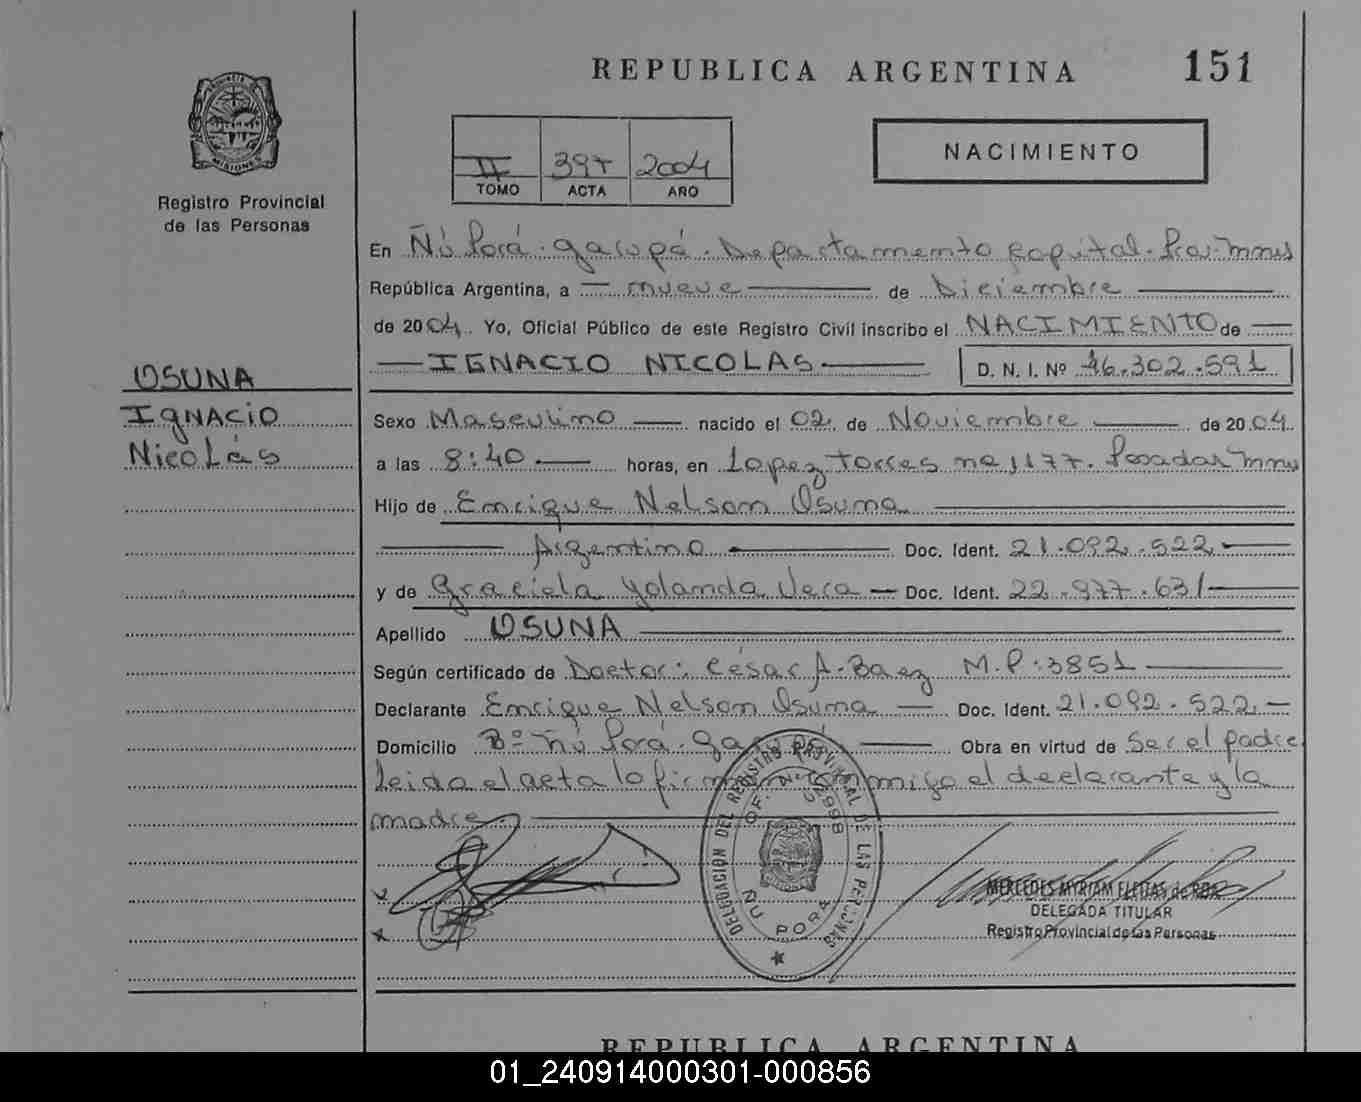 REPUBLICA ARGENTINA 151
PROVINCIA DE MISIONES
Registro Provincial
de las Personas
II 397 2004
TOMO ACTA AÑO
NACIMIENTO
En Ñú Porá. Garupá. Departamento Capital. Pcia. Mnes
República Argentina, a nueve de Diciembre
de 2004. Yo, Oficial Público de este Registro Civil inscribo el NACIMIENTO de
IGNACIO NICOLAS D. N. I. Nº 46.302.591
OSUNA
Ignacio
Nicolás
Sexo Masculino nacido el 02 de Noviembre de 2004.
a las 8:40 horas, en Lopez Torres no 1177. Posadas Mnes
Hijo de Enrique Nelson Osuna
Argentino Doc. Ident. 21.092.522
y de Graciela Yolanda Vera Doc. Ident. 22.977.631
Apellido OSUNA
Según certificado de Doctor: César A. Baez M.P.:3851
Declarante Enrique Nelson Osuna Doc. Ident. 21.092.522
Domicilio Bº Ñú Porá. Garupá Obra en virtud de Ser el padre
Leida el acta lo firman conmigo el declarante y la
madre
DELEGACION DEL REGISTRO PROVINCIAL DE LAS PERSONAS
OF. Nº
ÑU PORA
MERCEDES MYRIAM FLEITAS de ROA
DELEGADA TITULAR
Registro Provincial de las Personas
REPUBLICA ARGENTINA
01_240914000301-000856